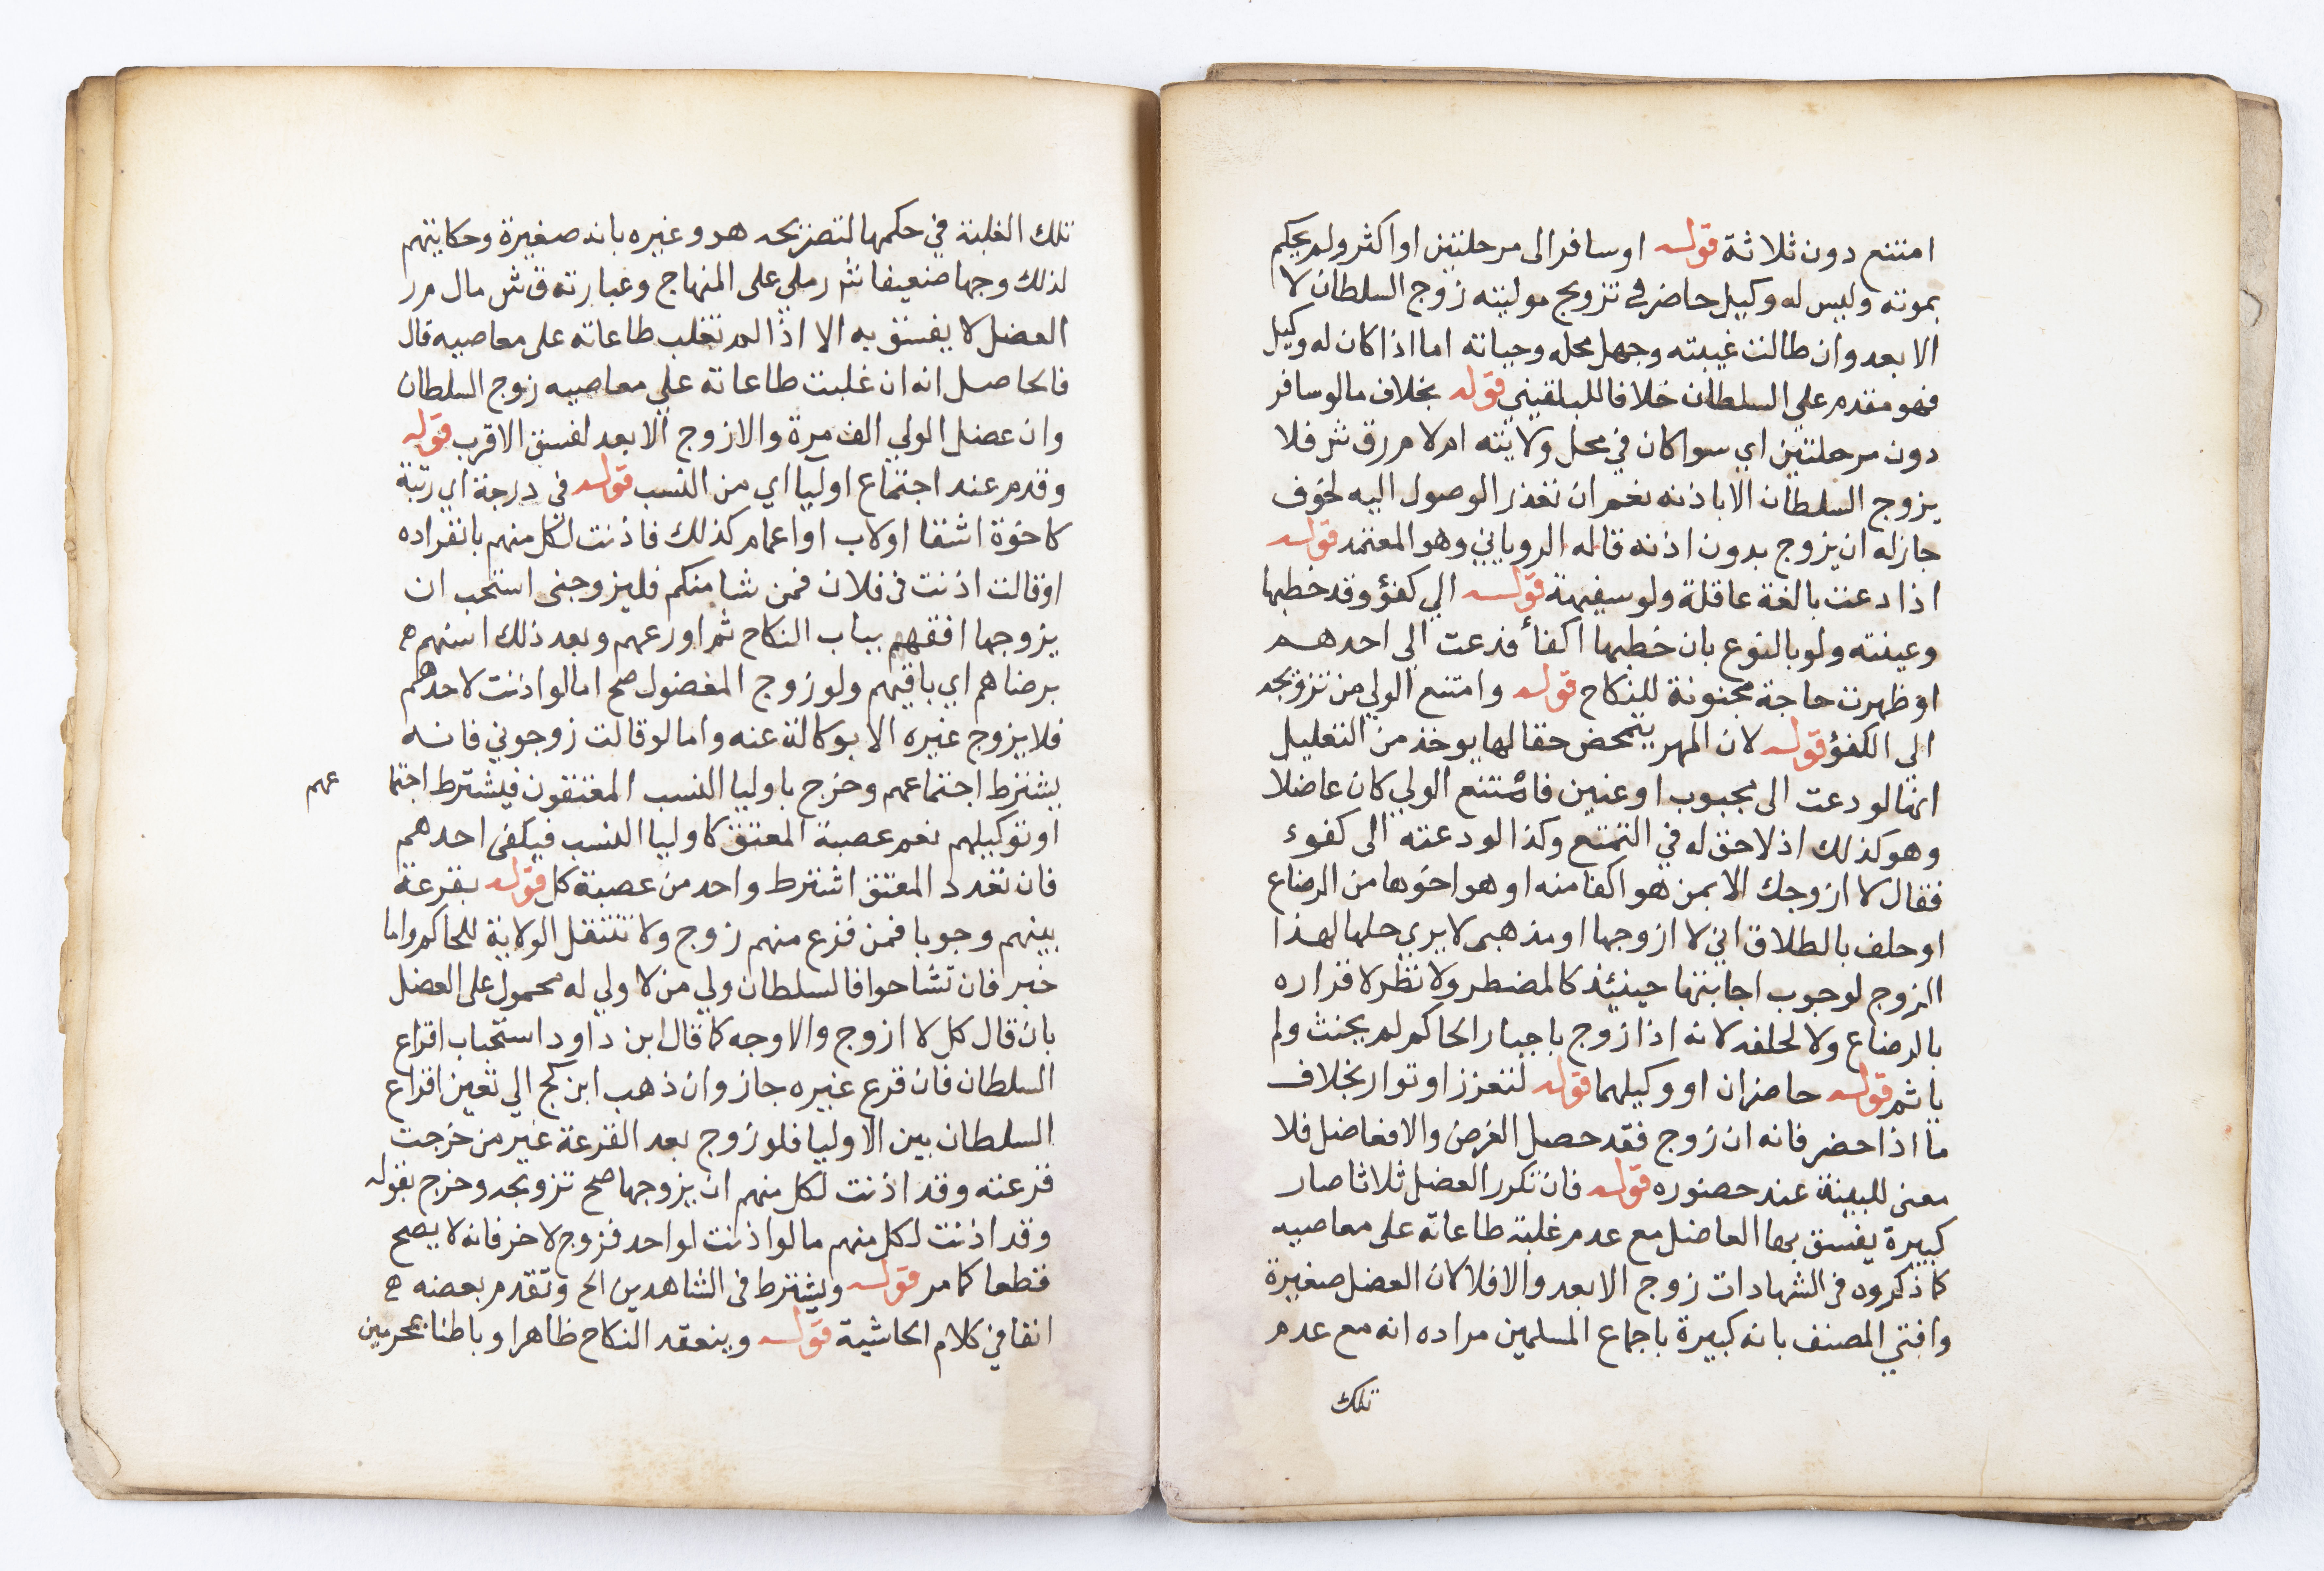 امتنع دون ثلاثة قوله او سافر الى مرحلتين او اكثر ولم يحكم
بموته وليس له وكيل حاضر في تزويج موليته زوج السلطان لا
الابعد وان طالت غيبته وجهل محله وحياته اما اذا كان له وكيل
فهو مقدم علي السلطان خلافا للبلقيني قوله بخلاف ما لو سافر
دون مرحلتين اي سوا كان في محل ولايته ام لا م ر ق ش فلا
يزوج السلطان الا باذنه نعم ان تعذر الوصول اليه لخوف
جاز له ان يزوج بدون اذنه قاله الروياني وهو المعتمد قوله
اذا دعت بالغة عاقلة ولو سفيهة قوله الي كفؤ وقد خطبها
وعينته ولو بالنوع بان خطبها اكفأ فدعت الي احدهم
او ظهرت حاجة مجنونة للنكاح قوله وامتنع الولي من تزويجه
الى الكفؤ قوله لان المهر يتمحض حقا لها يوخذ من التعليل
انها لو دعت الى مجبوب او عنين فامتنع الولي كان عاضلا
وهو كذلك اذ لا حق له في التمتع وكذا لو دعته الى كفوء
فقال لا ازوجك الا بمن هو اكفا منه او هو اخوها من الرضاع
او حلف بالطلاق اني لا ازوجها او مذهبي لا يري حلها لهذا
الزوج لوجوب اجابتها حينئذ كالمضطر ولا نظر لاقراره
بالرضاع ولا لحلفه لانه اذا زوج باجبار الحاكم لم يحنث ولم
ياثم قوله حاضران او وكيلهما قوله لتعزز او توار بخلاف
ما اذا حضر فانه ان زوج فقد حصل الغرض والا فعاضل فلا
معنى للبينة عند حضوره قوله فان تكرر العضل ثلاثا صار
كبيرة يفسق بها العاضل مع عدم غلبة طاعاته على معاصيه
كما ذكروه في الشهادات زوج الابعد والا فلا لان العضل صغيرة
وافتي المصنف بانه كبيرة باجماع المسلمين مراده انه مع عدم
تلك
تلك الغلبة في حكمها لتصريحه هو وغيره بانه صغيرة وحكايتهم
لذلك وجها ضعيفا ش رملي على المنهاج وعبارته ق ش مال م ر
العضل لا يفسق به الا اذا لم تغلب طاعاته على معاصيه قال
فالحاصل انه ان غلبت طاعاته علي معاصيه زوج السلطان
وان عضل الولي الف مرة والا زوج الابعد لفسق الاقرب قوله
وقدم عند اجتماع اوليا اي من النسب قوله في درجة اي رتبة
كاخوة اشقا او لاب او اعمام كذلك فاذنت لكل منهم بانفراده
او قالت اذنت في فلان فمن شا منكم فليزوجني استحب ان
يزوجها افقههم بباب النكاح ثم اورعهم وبعد ذلك اسنهم
برضاهم اي باقيهم ولو زوج المفضول صح اما لو اذنت لاحدهم
فلا يزوج غيره الا بوكالة عنه واما لو قالت زوجوني فانه
يشترط اجتماعهم وخرج باوليا النسب المعتقون فيشترط اجتما عهم
او توكيلهم نعم عصبة المعتق كاوليا النسب فيكفي احدهم
فان تعدد المعتق اشترط واحد من عصبة كل قوله بقرعة
بينهم وجوبا فمن قرع منهم زوج ولا تنتقل الولاية للحاكم واما
خبر فان تشاحوا فالسلطان ولي من لا ولي له محمول على العضل
بان قال كل لا ازوج والاوجه كما قال ابن داود استحباب اقراع
السلطان فان قرع غيره جاز وان ذهب ابن كج الي تعين اقراع
السلطان بين الاوليا فلو زوج بعد القرعة غير من خرجت
قرعته وقد اذنت لكل منهم ان يزوجها صح تزويجه وخرج بقوله
وقد اذنت لكل منهم ما لو اذنت لواحد فزوج لاخر فانه لا يصح
قطعا كما مر قوله ويشترط في الشاهدين الخ وتقدم بعضه
انفا في كلام الحاشية قوله وينعقد النكاح ظاهرا وباطنا بمحرمين